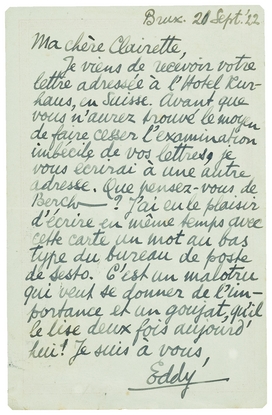 Brux. 20 Sept.'22
Ma chère Clairette,
Je viens de recevoir votre
lettre adressée à l'Hotel Kur-
haus, en Suisse. Avant que
vous n'aurez trouvé le moyen
de faire cesser l'examination
imbécile de vos lettres, je
vous écrirai à une autre
adresse. Que pensez-vous de
Berck—? J'ai eu le plaisir
d'écrire en même temps avec
cette carte un mot au bas
type du bureau de poste
de Sesto. C'est un malotru
qui veut se donner de l'im-
portance et un goujat, qu'il
le lise deux fois aujourd'
hui! Je suis à vous,
Eddy